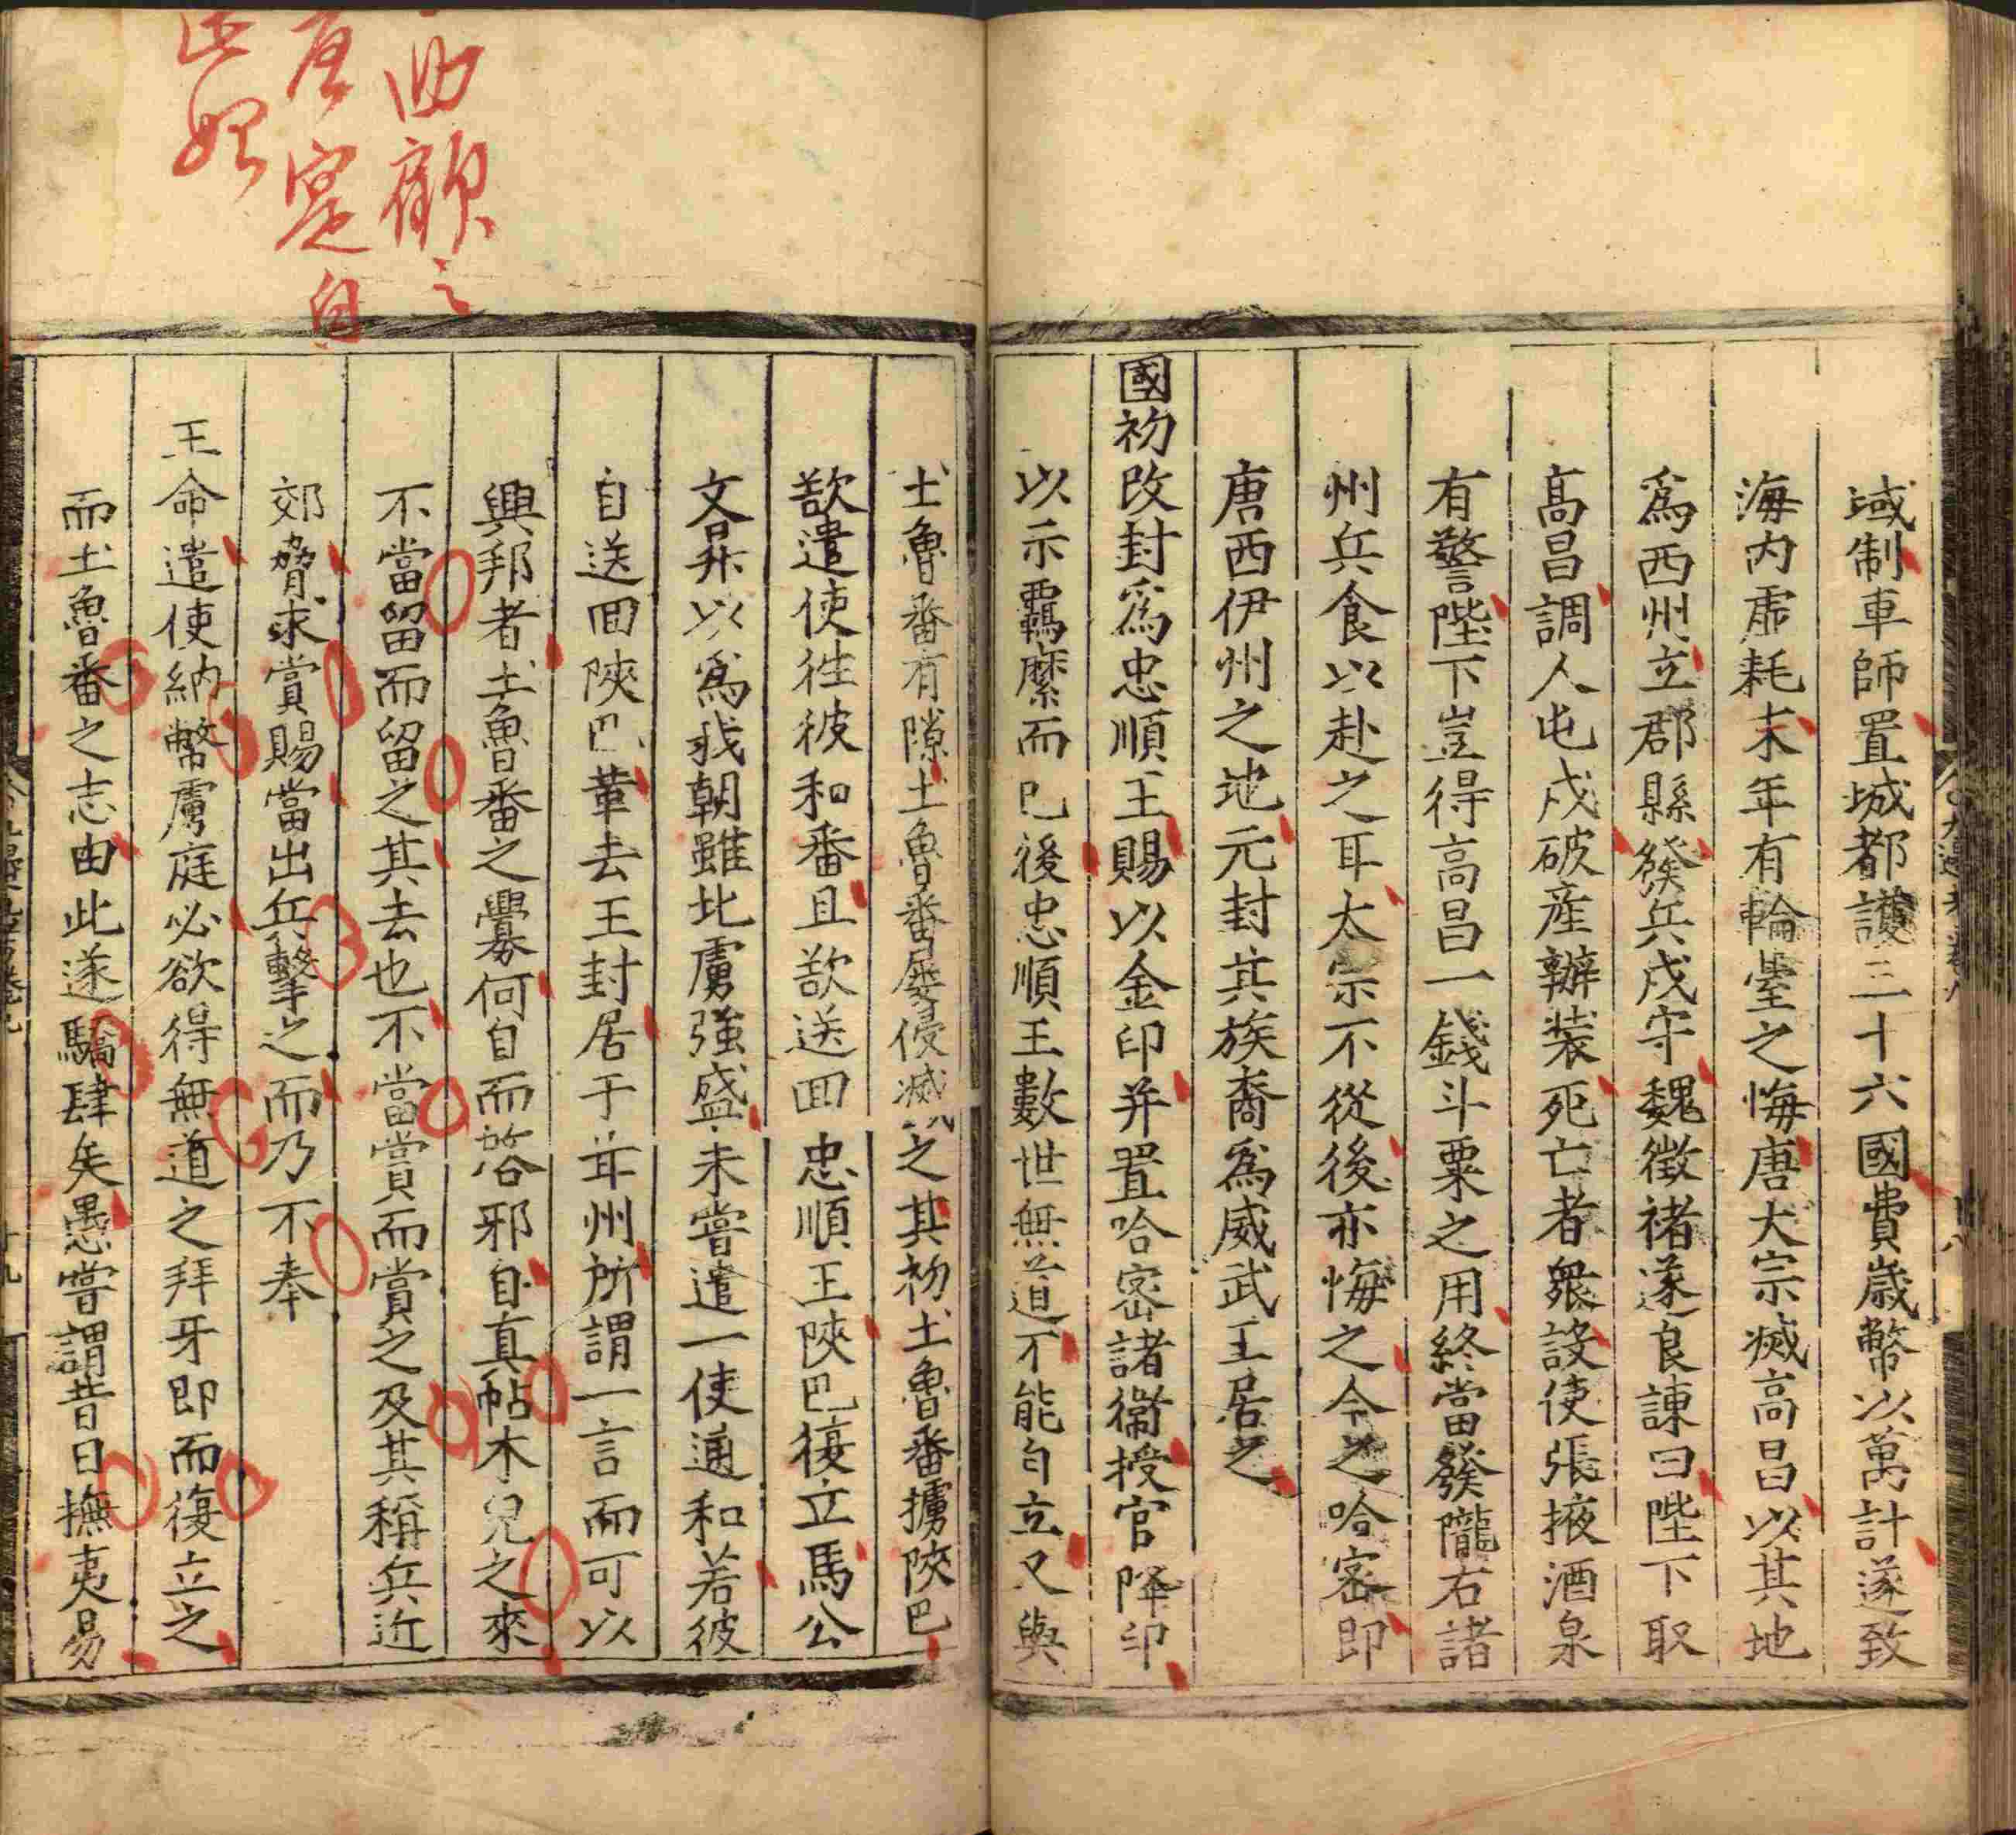 域制車師置城都護三十六國費歲幣以萬計遂致
海内虛耗末年有輪臺之悔唐太宗滅高昌以其地
爲西州立郡縣發兵戍守魏徵褚遂良諫曰陛下取
高昌調人屯戍破産辦裝死亡者衆設使張掖酒泉
有警陛下豈得高昌一錢斗粟之用終當發隴右諸
州兵食以赴之耳太宗不從後亦悔之今之哈密即
唐西伊州之地元封其族裔爲威武王居之
國初改封爲忠順王賜以金印并置哈密諸衛授官降印
以示羈縻而已後忠順王數世無道不能自立又與
土魯番有隙土魯番屡侵滅之其初土魯番擄陝巴
欲遣使徃彼和番且欲送回忠順王陝巴復立馬公
文昇以爲我朝雖北虜強盛未嘗遣一使通和若彼
自送回陝巴革去王封居于甘州所謂一言而可以
興邦者土魯番之釁何自而啓邪自真帖木兒之來
不當留而留之其去也不當賞而賞之及其稱兵近
郊脅求賞賜當出兵擊之而乃不奉
王命遣使納幣虜庭必欲得無道之拜牙即而復立之
而土魯番之志由此遂驕肆矣愚嘗謂昔日撫夷易